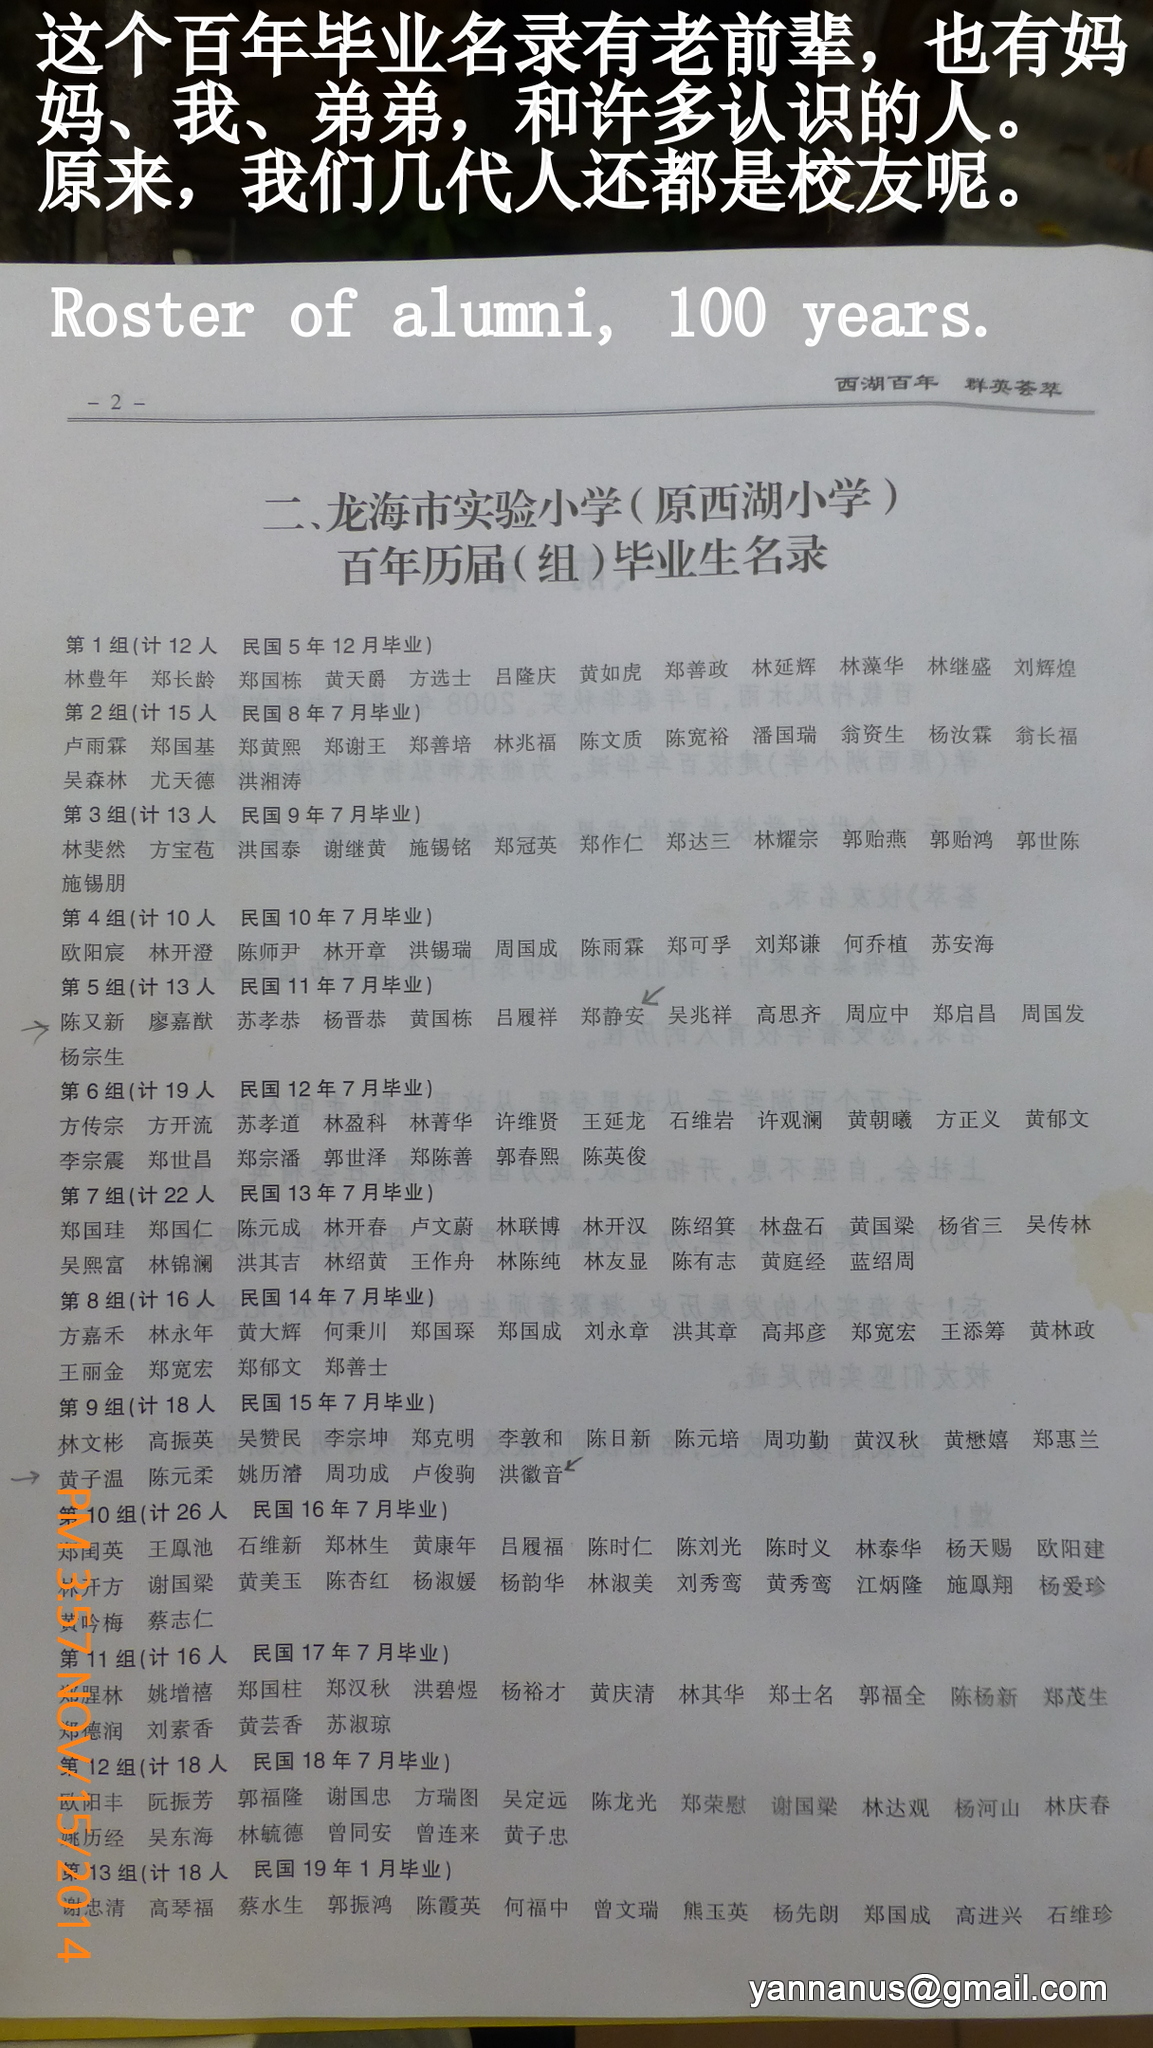 这个百年毕业名录有老前辈，也有妈
妈、我、弟弟，和许多认识的人。
原来，我们几代人还都是校友呢。
Roster of alumni, 100 years.
- 2 -
西湖百年 群英荟萃
二、龙海市实验小学(原西湖小学)
百年历届(组)毕业生名录
第1组(计12人 民国5年12月毕业)
林豊年 郑长龄 郑国栋 黄天爵 方选士 吕隆庆 黄如虎 郑善政 林延辉 林藻华 林继盛 刘辉煌
第2组(计15人 民国8年7月毕业)
卢雨霖 郑国基 郑黄熙 郑谢王 郑善培 林兆福 陈文质 陈宽裕 潘国瑞 翁资生 杨汝霖 翁长福
吴森林 尤天德 洪湘涛
第3组(计13人 民国9年7月毕业)
林斐然 方宝苞 洪国泰 谢继黄 施锡铭 郑冠英 郑作仁 郑达三 林耀宗 郭贻燕 郭贻鸿 郭世陈
施锡朋
第4组(计10人 民国10年7月毕业)
欧阳宸 林开澄 陈师尹 林开章 洪锡瑞 周国成 陈雨霖 郑可孚 刘郑谦 何乔植 苏安海
第5组(计13人 民国11年7月毕业)
陈又新 廖嘉猷 苏孝恭 杨晋恭 黄国栋 吕履祥 郑静安 吴兆祥 高思齐 周应中 郑启昌 周国发
杨宗生
第6组(计19人 民国12年7月毕业)
方传宗 方开流 苏孝道 林盈科 林菁华 许维贤 王延龙 石维岩 许观澜 黄朝曦 方正义 黄郁文
李宗震 郑世昌 郑宗潘 郭世泽 郑陈善 郭春熙 陈英俊
第7组(计22人 民国13年7月毕业)
郑国珪 郑国仁 陈元成 林开春 卢文蔚 林联博 林开汉 陈绍箕 林盘石 黄国梁 杨省三 吴传林
吴熙富 林锦澜 洪其吉 林绍黄 王作舟 林陈纯 林友显 陈有志 黄庭经 蓝绍周
第8组(计16人 民国14年7月毕业)
方嘉禾 林永年 黄大辉 何秉川 郑国琛 郑国成 刘永章 洪其章 高邦彦 郑宽宏 王添筹 黄林政
王丽金 郑宽宏 郑郁文 郑善士
第9组(计18人 民国15年7月毕业)
林文彬 高振英 吴赞民 李宗坤 郑克明 李敦和 陈日新 陈元培 周功勤 黄汉秋 黄懋嬉 郑惠兰
黄子温 陈元柔 姚历濬 周功成 卢俊驹 洪徽音
第10组(计26人 民国16年7月毕业)
郑闺英 王鳳池 石维新 郑林生 黄康年 吕履福 陈时仁 陈刘光 陈时义 林泰华 杨天赐 欧阳建
林开方 谢国梁 黄美玉 陈杏红 杨淑媛 杨韵华 林淑美 刘秀鸾 黄秀鸾 江炳隆 施鳳翔 杨爱珍
黄吟梅 蔡志仁
第11组(计16人 民国17年7月毕业)
郑腥林 姚增禧 郑国柱 郑汉秋 洪碧煜 杨裕才 黄庆清 林其华 郑士名 郭福全 陈杨新 郑茂生
郑德润 刘素香 黄芸香 苏淑琼
第12组(计18人 民国18年7月毕业)
欧阳丰 阮振芳 郭福隆 谢国忠 方瑞图 吴定远 陈龙光 郑荣慰 谢国梁 林达观 杨河山 林庆春
姚历经 吴东海 林毓德 曾同安 曾连来 黄子忠
第13组(计18人 民国19年1月毕业)
谢忠清 高琴福 蔡水生 郭振鸿 陈霞英 何福中 曾文瑞 熊玉英 杨先朗 郑国成 高进兴 石维珍
PM 3:57 NOV/15/2014
yannanus@gmail.com